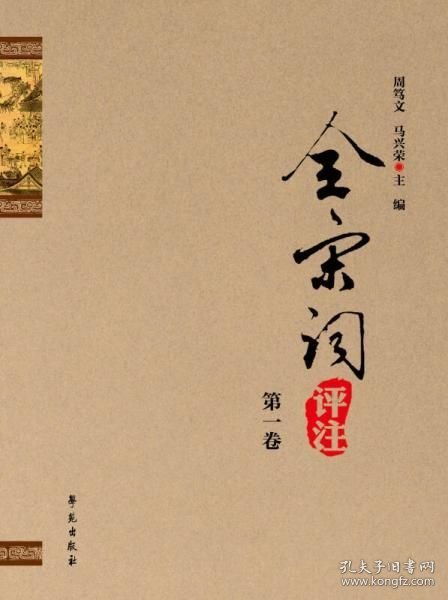 周笃文 马兴荣 主编
全宋词
评注
第一卷
學苑出版社
孔夫子旧书网
www.kongfz.com